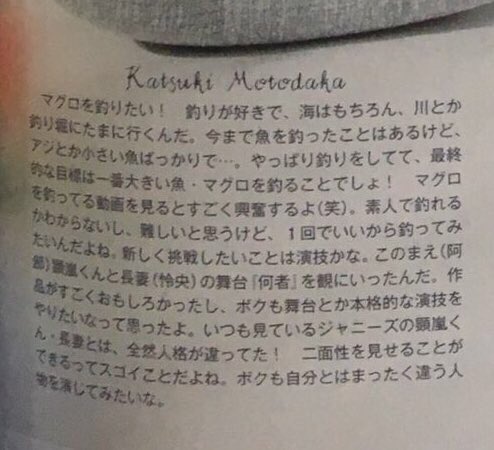 Katsuki Motodaka
マグロを釣りたい！　釣りが好きで、海はもちろん、川とか
釣り堀にたまに行くんだ。今まで魚を釣ったことはあるけど、
アジとか小さい魚ばっかりで…。やっぱり釣りをしてて、最終
的な目標は一番大きい魚・マグロを釣ることでしょ！　マグロ
を釣ってる動画を見るとすごく興奮するよ(笑)。素人で釣れる
かわからないし、難しいと思うけど、１回でいいから釣ってみ
たいんだよね。新しく挑戦したいことは演技かな。このまえ(阿
部)顕嵐くんと長妻(怜央)の舞台『何者』を観にいったんだ。作
品がすごくおもしろかったし、ボクも舞台とか本格的な演技を
やりたいなって思ったよ。いつも見ているジャニーズの顕嵐く
ん・長妻とは、全然人格が違ってた！　二面性を見せることが
できるってスゴイことだよね。ボクも自分とはまったく違う人
物を演じてみたいな。